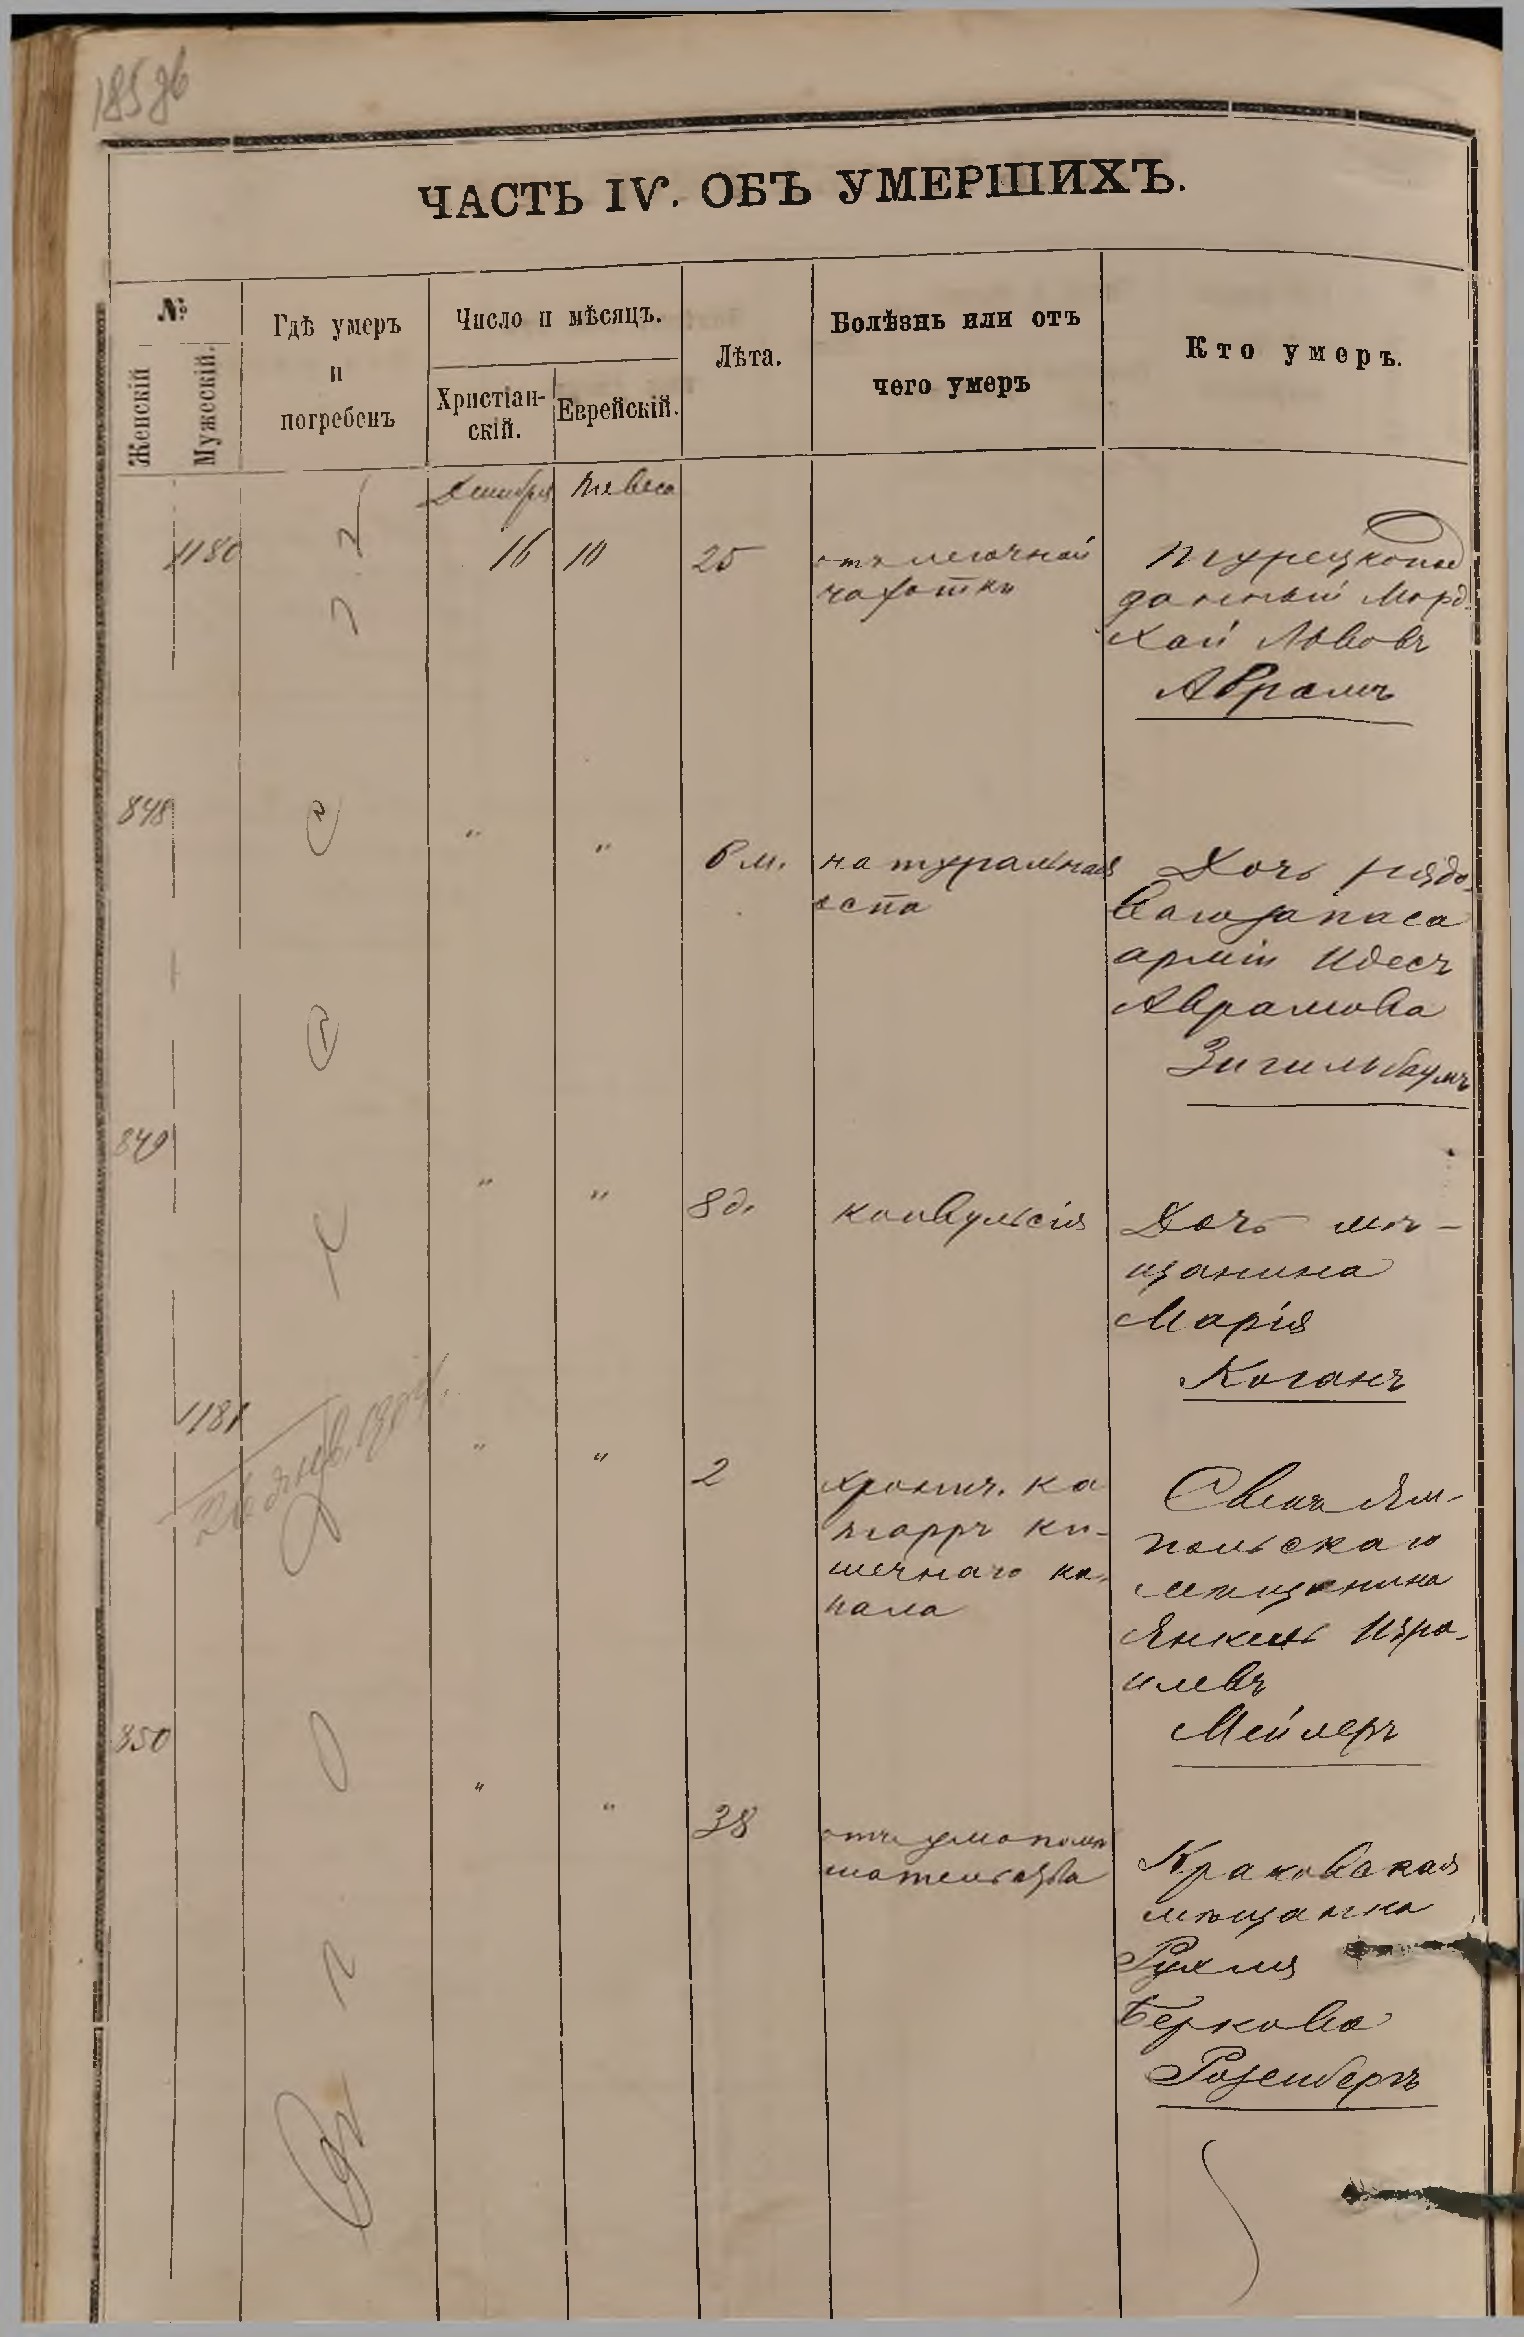 185 об
ЧАСТЬ IV. ОБЪ УМЕРШИХЪ.
№
Женскій
Мужескій.
Гдѣ умеръ
и
погребенъ
Число и мѣсяцъ.
Христіан-
скій.
Еврейскій.
Лѣта.
Болѣзнь или отъ
чего умеръ
Кто умеръ.
Декабря Тевеса
1180
Г о
16 10 25
отъ легочной
чахотки
Турецкопод
данный Морд
хай Львовъ
Абрамъ
848
" " 6 м.
натуральная
оспа
Дочь рядо-
ваго запаса
арміи Идесъ
Абрамова
Зигильбаумъ
849
" " 8 д.
конвульсія
Дочь мѣ-
щанина
Марія
Коганъ
1181
" " 2
хронич. ка
тарръ ки-
шечнаго ка-
нала
Сынъ Ям-
польскаго
мѣщанина
Янкель Изра-
илевъ
Мейлеръ
850
" " 38
отъ умопомѣ
шательства
Краковская
мѣщанка
Рухля
Беркова
Розенбергъ